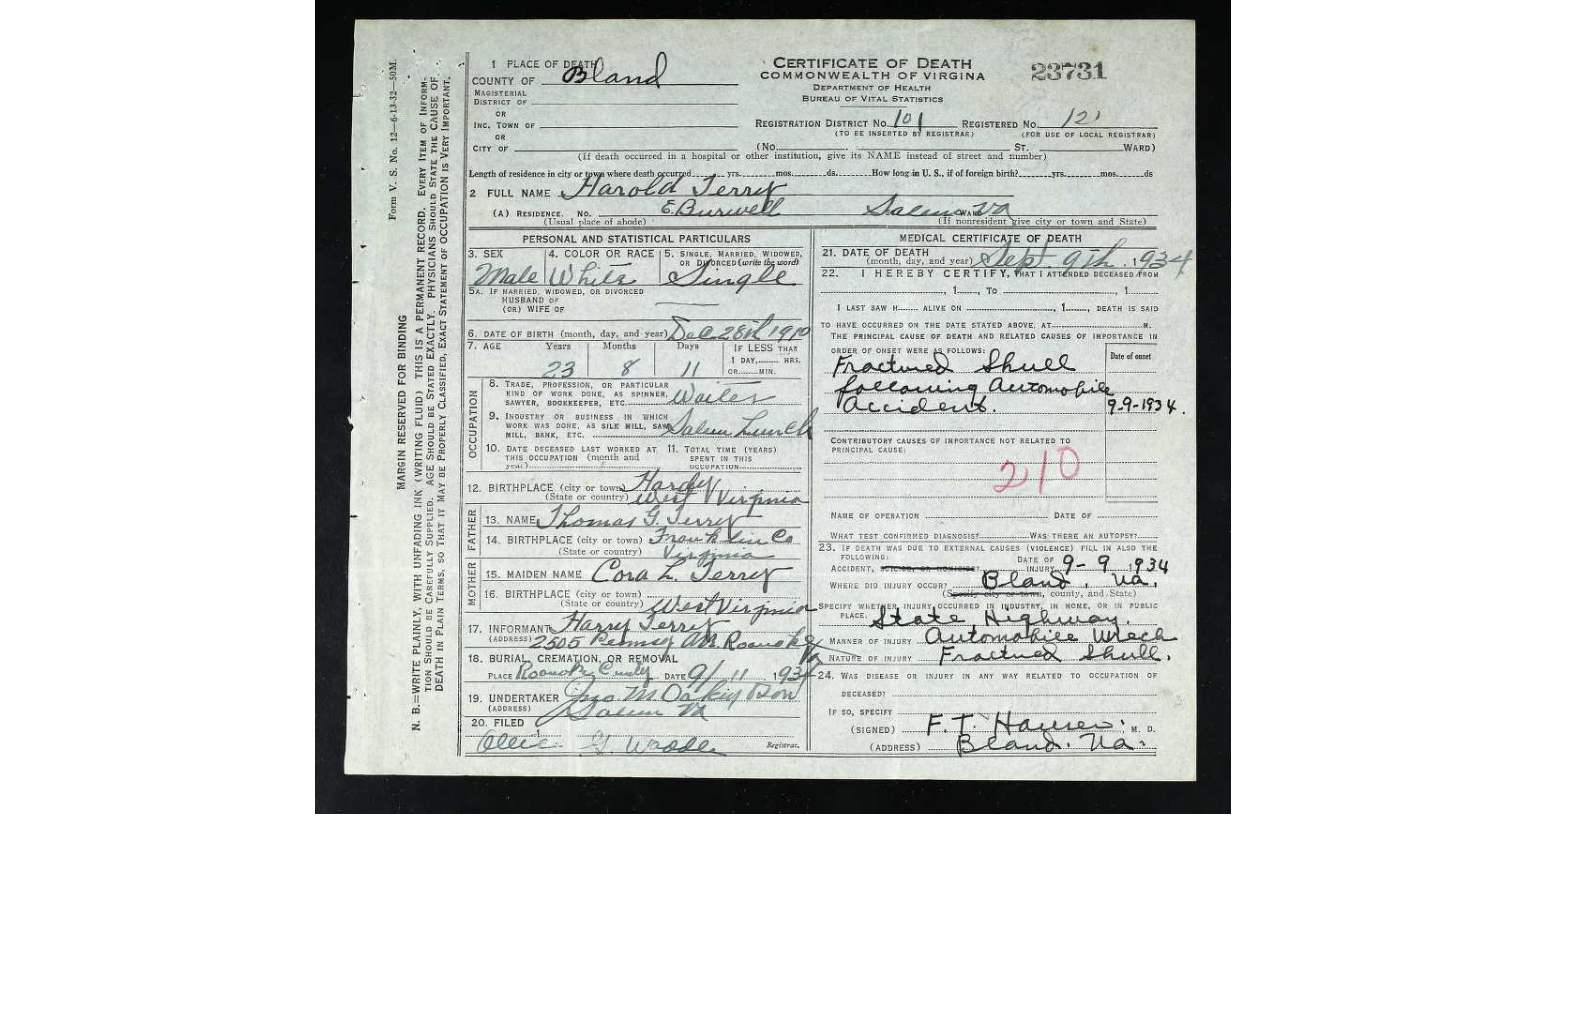 1 PLACE OF DEATH
COUNTY OF Bland
MAGISTERIAL
DISTRICT OF
OR
INC. TOWN OF
OR
CITY OF
CERTIFICATE OF DEATH
COMMONWEALTH OF VIRGINIA
DEPARTMENT OF HEALTH
BUREAU OF VITAL STATISTICS
23731
REGISTRATION DISTRICT NO. 101 REGISTERED NO. 121
(TO BE INSERTED BY REGISTRAR) (FOR USE OF LOCAL REGISTRAR)
(No. ST. WARD)
(If death occurred in a hospital or other institution, give its NAME instead of street and number)
Length of residence in city or town where death occurred yrs. mos. ds. How long in U. S., if of foreign birth? yrs. mos. ds
2 FULL NAME Harold Terry
(A) RESIDENCE. NO. E. Burwell Salem WARD Va
(Usual place of abode) (If nonresident give city or town and State)
PERSONAL AND STATISTICAL PARTICULARS
3. SEX 4. COLOR OR RACE 5. SINGLE, MARRIED, WIDOWED,
OR DIVORCED (write the word)
Male White Single
5A. IF MARRIED, WIDOWED, OR DIVORCED
HUSBAND OF
(OR) WIFE OF
6. DATE OF BIRTH (month, day, and year) Dec. 28th 1910
7. AGE Years Months Days IF LESS THAN
1 DAY, HRS.
23 8 11 OR MIN.
OCCUPATION
8. TRADE, PROFESSION, OR PARTICULAR
KIND OF WORK DONE, AS SPINNER, Waiter
SAWYER, BOOKKEEPER, ETC.
9. INDUSTRY OR BUSINESS IN WHICH
WORK WAS DONE, AS SILK MILL, SAW Salem Lunch
MILL, BANK, ETC.
10. DATE DECEASED LAST WORKED AT 11. TOTAL TIME (YEARS)
THIS OCCUPATION (month and SPENT IN THIS
year) OCCUPATION
12. BIRTHPLACE (city or town) Hardy
(State or country) West Virginia
FATHER
13. NAME Thomas G. Terry
14. BIRTHPLACE (city or town) Franklin Co
(State or country) Virginia
MOTHER
15. MAIDEN NAME Cora L. Terry
16. BIRTHPLACE (city or town)
(State or country) West Virginia
17. INFORMANT Harry Terry
(ADDRESS) 2505 Ave. Roanoke Va
18. BURIAL, CREMATION, OR REMOVAL
PLACE Roanoke DATE 9/11 1934
19. UNDERTAKER Jno M. Oakey & Son
(ADDRESS) Salem Va
20. FILED
Ollie G. Waddle Registrar.
MEDICAL CERTIFICATE OF DEATH
21. DATE OF DEATH
(month, day, and year) Sept. 9th, 1934
22. I HEREBY CERTIFY, THAT I ATTENDED DECEASED FROM
, 1 , TO , 1
I LAST SAW H ALIVE ON , 1 , DEATH IS SAID
TO HAVE OCCURRED ON THE DATE STATED ABOVE, AT M.
THE PRINCIPAL CAUSE OF DEATH AND RELATED CAUSES OF IMPORTANCE IN
ORDER OF ONSET WERE AS FOLLOWS: Date of onset
Fractured Skull
following Automobile
Accident. 9-9-1934.
CONTRIBUTORY CAUSES OF IMPORTANCE NOT RELATED TO
PRINCIPAL CAUSE:
210
NAME OF OPERATION DATE OF
WHAT TEST CONFIRMED DIAGNOSIS? WAS THERE AN AUTOPSY?
23. IF DEATH WAS DUE TO EXTERNAL CAUSES (VIOLENCE) FILL IN ALSO THE
FOLLOWING:
ACCIDENT, SUICIDE, OR HOMICIDE? DATE OF INJURY 9-9 1934
WHERE DID INJURY OCCUR? Bland, Va.
(Specify city or town, county, and State)
SPECIFY WHETHER INJURY OCCURRED IN INDUSTRY, IN HOME, OR IN PUBLIC
PLACE. State Highway.
MANNER OF INJURY Automobile Wreck
NATURE OF INJURY Fractured Skull.
24. WAS DISEASE OR INJURY IN ANY WAY RELATED TO OCCUPATION OF
DECEASED?
IF SO, SPECIFY
(SIGNED) F. T. M. D.
(ADDRESS) Bland. Va.
Form V. S. No. 12—6-13-32—50M.
MARGIN RESERVED FOR BINDING
N. B.—WRITE PLAINLY, WITH UNFADING INK (WRITING FLUID) THIS IS A PERMANENT RECORD. EVERY ITEM OF INFORMA-
TION SHOULD BE CAREFULLY SUPPLIED. AGE SHOULD BE STATED EXACTLY. PHYSICIANS SHOULD STATE THE CAUSE OF
DEATH IN PLAIN TERMS, SO THAT IT MAY BE PROPERLY CLASSIFIED. EXACT STATEMENT OF OCCUPATION IS VERY IMPORTANT.